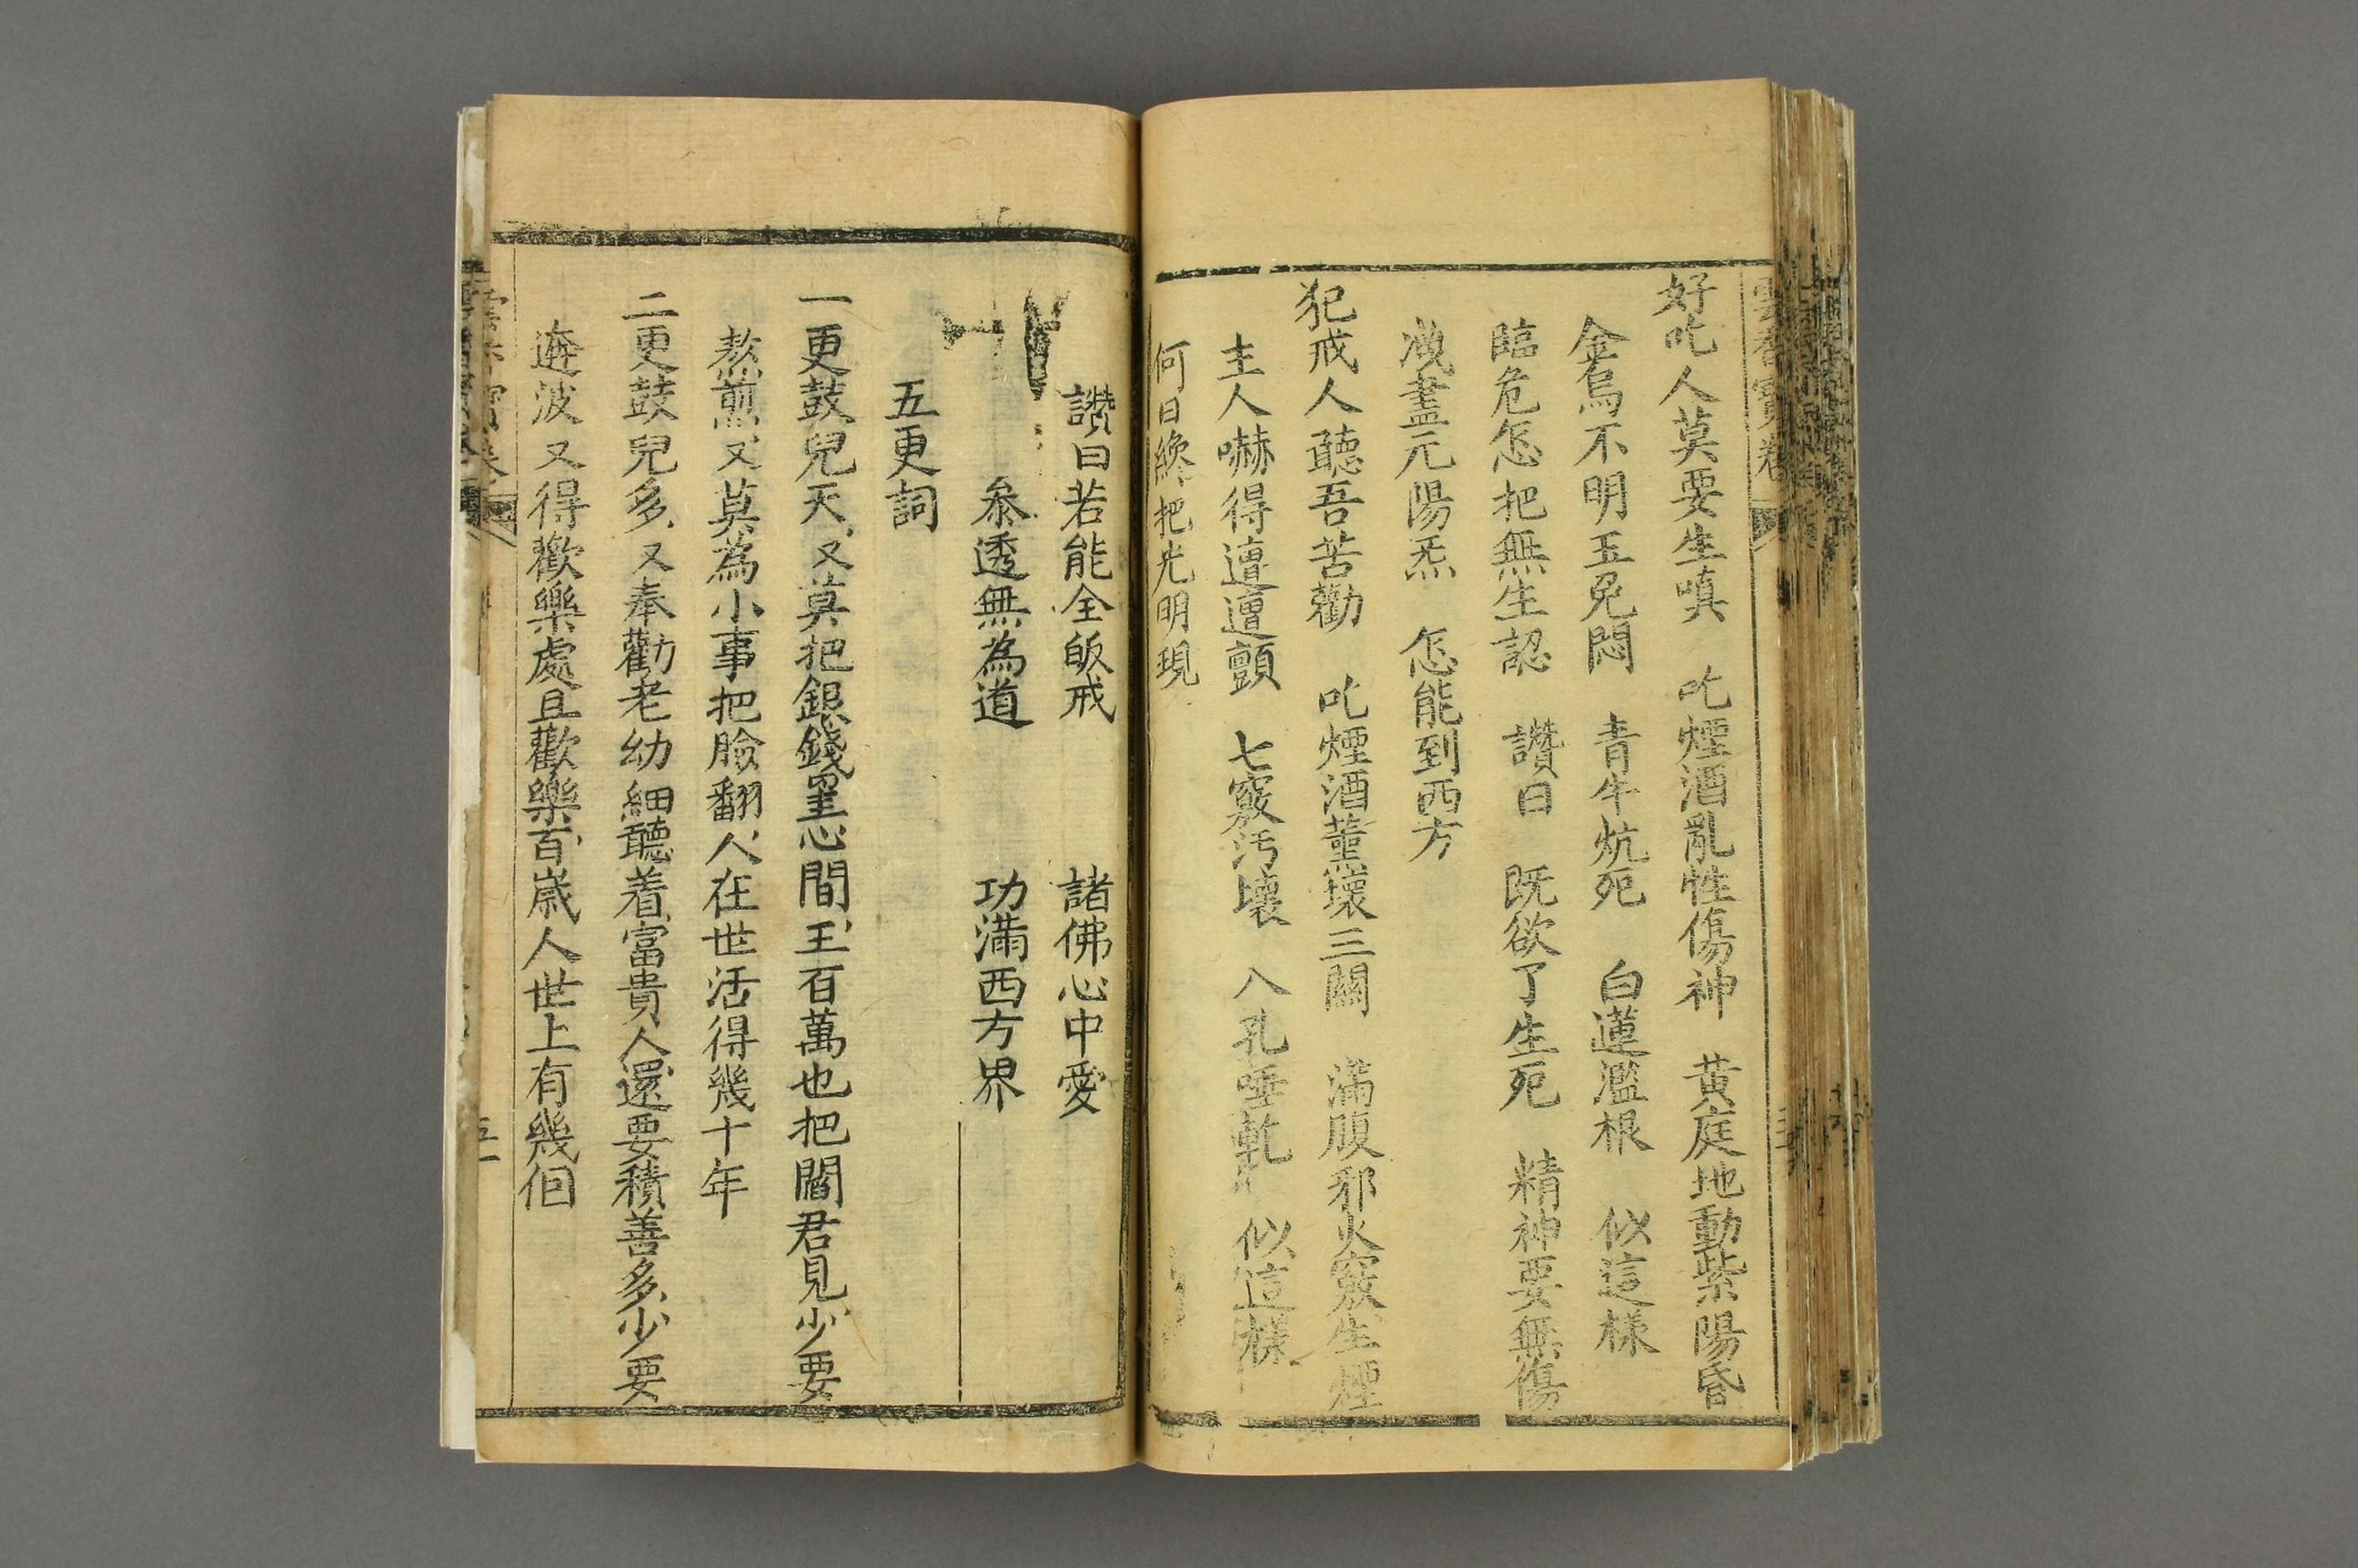 雲香寶卷
好吃人莫要生嗔　吃煙酒亂性傷神　黃庭地動紫陽昏
金烏不明玉免悶　青牛炕死　白蓮濫根　似這樣
臨危怎把無生認　讚曰　既欲了生死　精神要無傷
洩盡元陽炁　怎能到西方
犯戒人聽吾苦勸　吃煙酒薰壞三關　滿腹邪火竅生煙
主人嚇得邅邅顫　七竅污壞　八孔唾乾　似這樣
何日纔把光明現
讚曰若能全皈戒　諸佛心中愛
叅透無為道　功滿西方界
五更詞
一更鼓兒天又莫把銀錢罣心間王百萬也把閻君見少要
熬煎又莫為小事把臉翻人在世活得幾十年
二更鼓兒多又奉勸老幼細聽着富貴人還要積善多少要
逩波又得歡樂處且歡樂百歲人世上有幾個